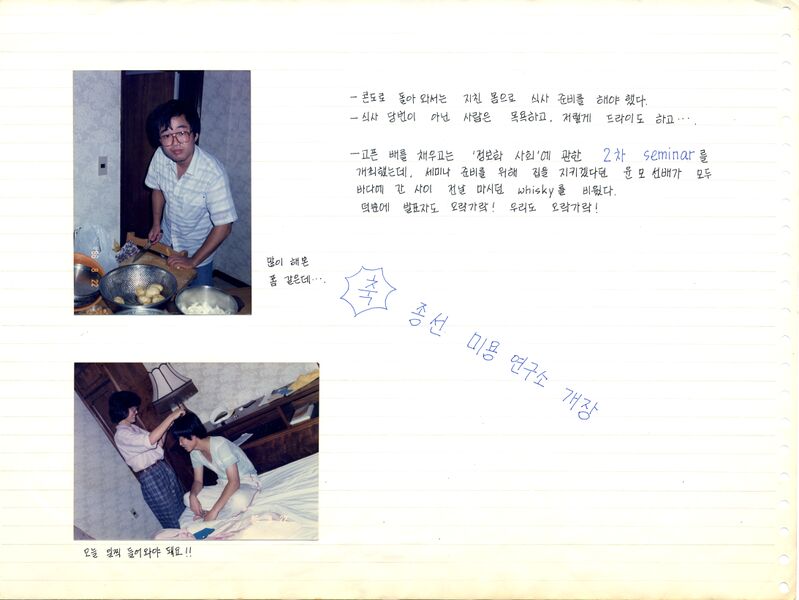 - 콘도로 돌아 와서는 지친 몸으로 식사 준비를 해야 했다.
- 식사 당번이 아닌 사람은 목욕하고, 저렇게 드라이도 하고….
- 고픈 배를 채우고는 '정보화 사회'에 관한 2차 seminar를
개최했는데, 세미나 준비를 위해 집을 지키겠다던 윤 모 선배가 모두
바다에 간 사이 전날 마시던 whisky를 비웠다.
덕분에 발표자도 오락가락! 우리도 오락가락!
많이 해본
폼 같은데….
축
종선 미용 연구소 개장
오늘 일찍 들어와야 돼요!!
'88 8 22